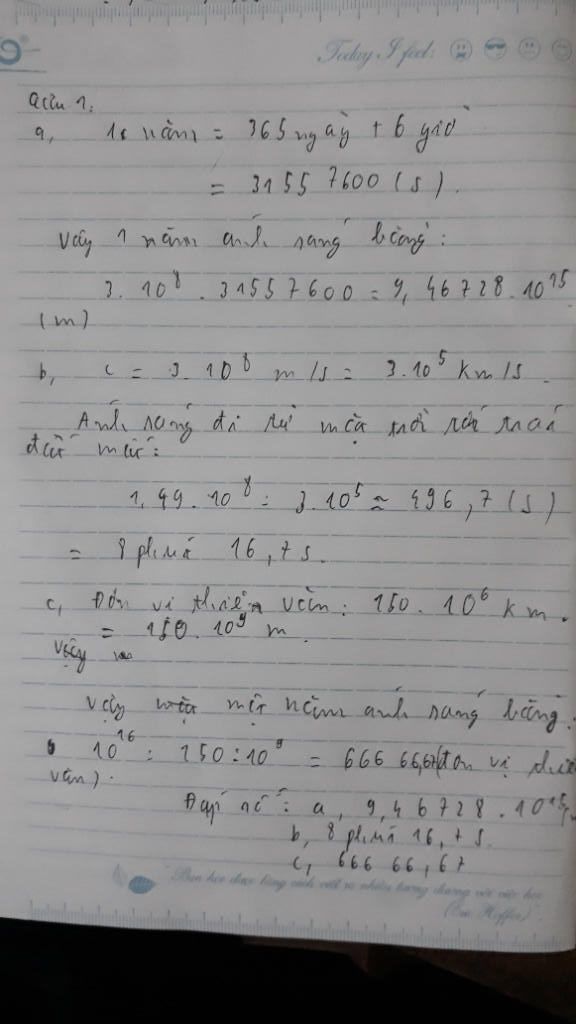 Today I feel:
Câu 1.
a, 1 năm = 365 ngày + 6 giờ
= 31557600 (s).
Vậy 1 năm ánh sáng bằng:
3. 10⁸ . 31557600 = 9,46728.10¹⁵
(m)
b, c = 3.10⁸ m/s = 3.10⁵ km/s.
Ánh sáng đi từ mặt trời tới trái
đất mất:
1,49.10⁸ : 3.10⁵ ≈ 496,7 (s)
= 8 phút 16,7 s.
c, Đơn vị thiên văn: 150.10⁶ km.
= 150.10⁹ m
Vậy
Vậy một năm ánh sáng bằng:
10¹⁶ : 150:10⁹ = 66666,67(đơn vị thiên
văn).
Đáp số: a, 9,46728.10¹⁵m
b, 8 phút 16,7 s.
c, 66666,67
Bạn học được bằng cách viết ra nhiều tương đương với việc học
(Eric Hoffer)